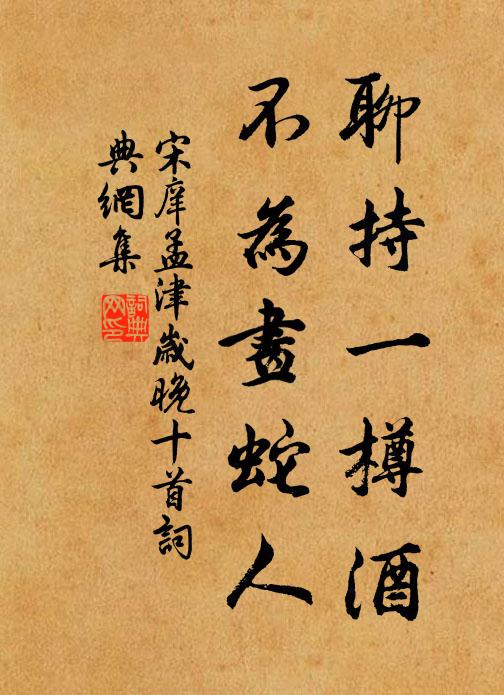 聊持一樽酒
不為畫蛇人
宋庠孟津歲晚十首詞
典網集
詞典網印